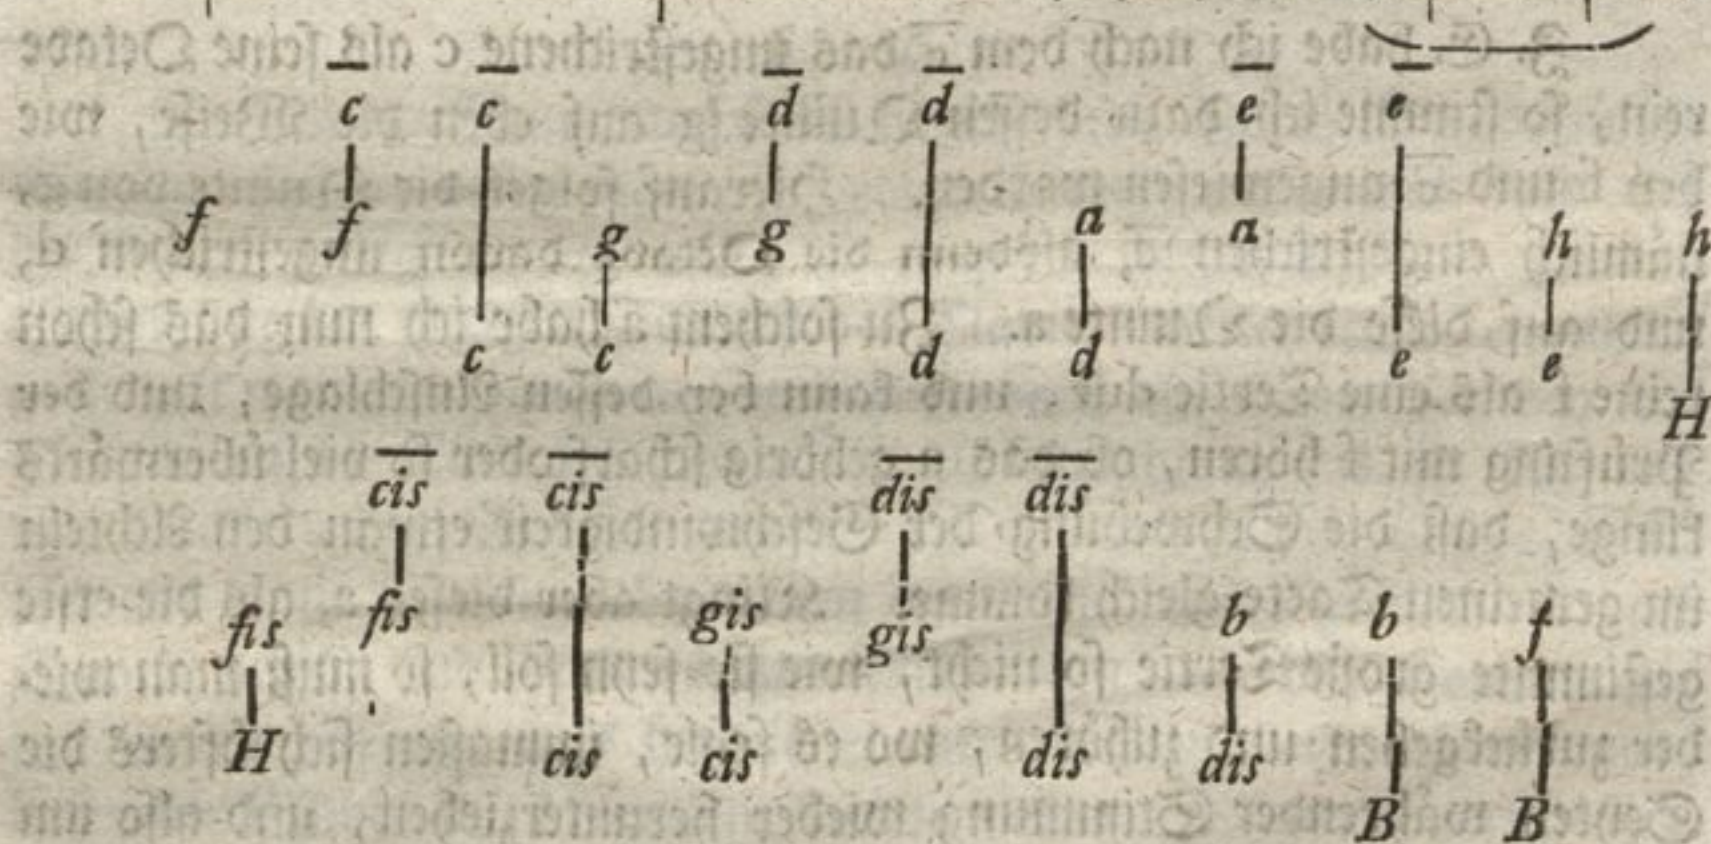 c̅ c̅ d̅ d̅ e̅ e̅
f f g g a a h h
c c d d e e
H
c̅i̅s̅ c̅i̅s̅ d̅i̅s̅ d̅i̅s̅
fis fis gis gis b b f
H cis cis dis dis
B B